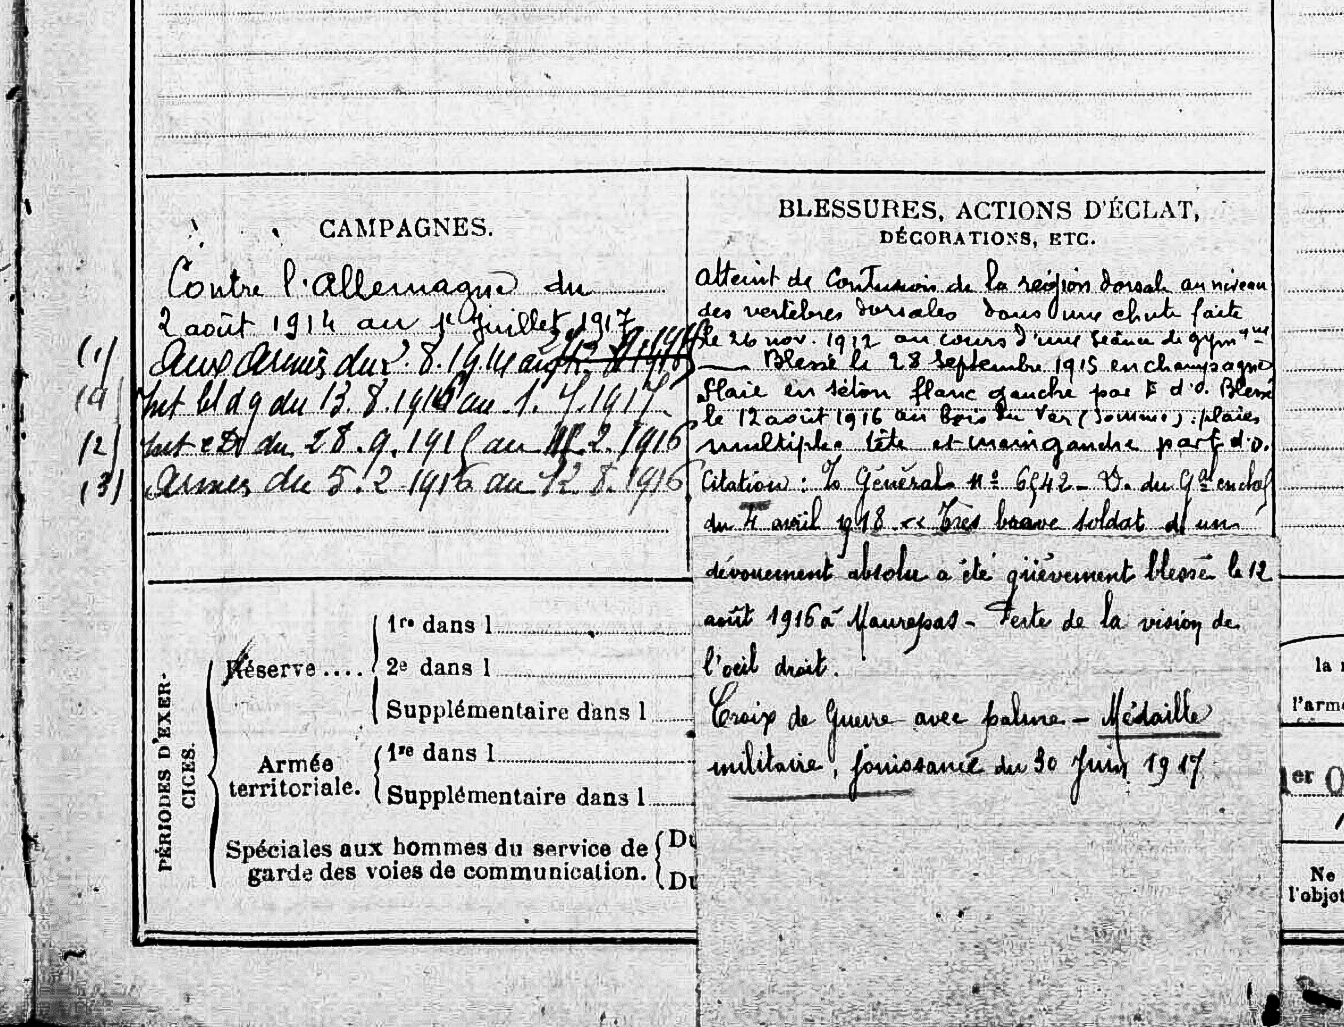 CAMPAGNES.
Contre l'Allemagne du
2 août 1914 au 1er Juillet 1917
(1) aux Armées du 2.8.1914 au
(4) Int bl dg du 13.8.1916 au 1.7.1917
(2) Int du 28.9.1915 au 2.1916
(3) Armées du 5.2.1916 au 12.8.1916
BLESSURES, ACTIONS D'ÉCLAT,
DÉCORATIONS, ETC.
Atteint de Contusion de la région dorsale au niveau
des vertèbres dorsales dans une chute faite
le 26 nov. 1912 au cours d'une séance de gymque
Blessé le 28 Septembre 1915 en champagne
Plaie en séton flanc gauche par E d'o. Blessé
le 12 août 1916 au bois du Ver (Somme) : plaies
multiples tête et main gauche par E d'o.
Citation : To Général No 6542 - D. du Gal en chef
du 4 avril 1918 << Très brave soldat d'un
dévouement absolu a été grièvement blessé le 12
août 1916 à Maurepas - Perte de la vision de
l'oeil droit.
Croix de Guerre avec palme - Médaille
militaire, jouissance du 30 Juin 1917
PÉRIODES D'EXER-
CICES.
Réserve ....
1re dans l
2e dans l
Supplémentaire dans l
Armée
territoriale.
1re dans l
Supplémentaire dans l
Spéciales aux hommes du service de
garde des voies de communication.
Du
Du
la
l'armé
er
Ne
l'objet